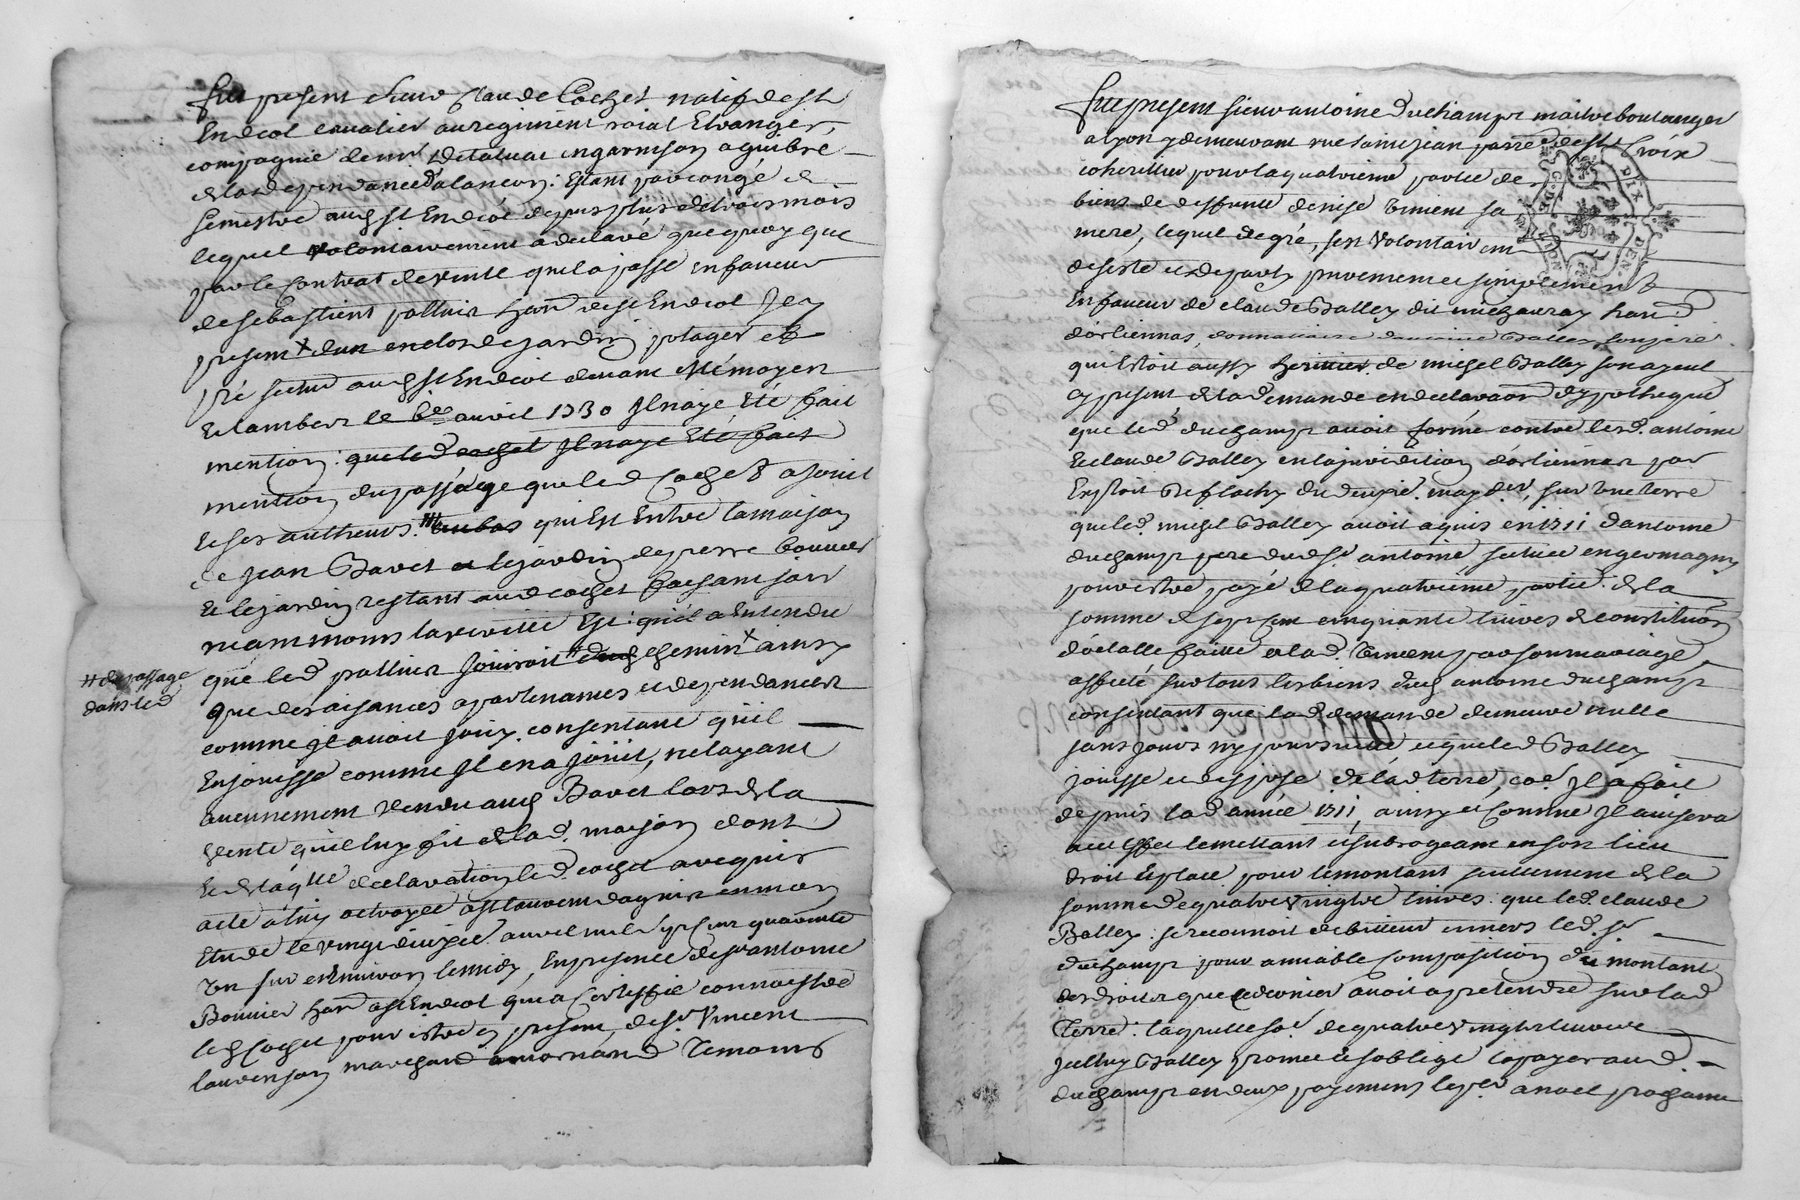 fut present sieur Claude Cochet natif de st
Endeol cavalier au regiment roial Etranger,
compagnie de mr en garnison a guibré
de la dependance d'alancon: Estant par congé de
semestre aud st Endeol depuis plus de trois mois
lequel volontairement a declaré que quoy que
par le contrat de vente quil a passé en faveur
de sebastient pollnie hant de st Endeol Jcy
present x dun enclos de jardin potager et
pré scitué aud st Endeol devant Me moyen
Et lambert le 6e avril 1730 Jl naye Eté fait
mention: que led cochet Jl naye Eté fait
mention du passage que led Cochet a Jouit
et ses autheurs. qui Est Entre la maison
de Jean Bavet et le jardin de pierre bonnier
et le jardin restant aud cochet faisant son
neammoins la verité Est: qu'il a Entendu
que led pollnie Joüiroit dud chemin x ainsy
# du passage
dans led
que des aisances apartenances et dependances
comme Jl avoit Joüy. consentant qu'il
En jouisse comme Jl en a Joüit, ne layant
aucunement vendu aud Bavet lors de la
vente qu'il luy fit de lad. maison dont
Et de laqlle declaration led. cochet a requis
acte a luy octroyée en mon
Etude le vingt deuxe. avril mil sept cent quarante
un sur environ le midy, En presence de sr antoine
Bonnier hant a st Endeol qui a Certiffié connoistre
led Cochet pour istre present, de sr Vincent
laurenson marchand a mornand Temoins

fut present sieur antoine duchamps maitre boulanger
a lyon y demeurant rue saint jean parre de ste Croix
coheritier pour la quatrieme partie des
biens de deffunte denise vincent sa
mere, lequel de gré, sen volontairem
desiste et depart purement et simplement
En faveur de claude Balley dit michauray hant
d'orliennas, donnataire dantoine Balley son pere
qui Estoit aussy heritier de michel Balley son ayeul
cy present de la demande en declaraon dypotheque
que led duchamps avoit formé contre lesd. antoine
et claude Balley en la jurisdition d'orliennas par
Exploit Deflachy du deuxie. may der, sur une terre
que led. michel Balley avoit aquis en 1711 dantoine
duchamps pere dud sr antoine, scituée en germagny
pour estre payé de la quatrieme partie de la
somme de sept cent cinquante livres de constitution
dotalle faitte a lad. vincent par son mariage
affecté sur tous les biens dud antoine duchamps
consentant que lad demande demeure nulle
sans jours ny poursuitte et que led Balley
jouisse et dispose de lad terre, coe. Jl a fait
depuis lad année 1711, ainsy et Comme Jl avisera
a cet Effet le mettant et subrogeant en son lieu
droit et place pour le montant seullement de la
somme de quatre vingtre livres que led. claude
Balley: se reconnoit debiteur envers led. sr
duchamps pour amiable composition du montant
des droits que ce dernier avoit a pretendre sur lad
Terre: laquelle soe. de quatre vingts
Jcelluy Balley promet et soblige la payer aud.
duchamps en deux payements le per a noel prochain